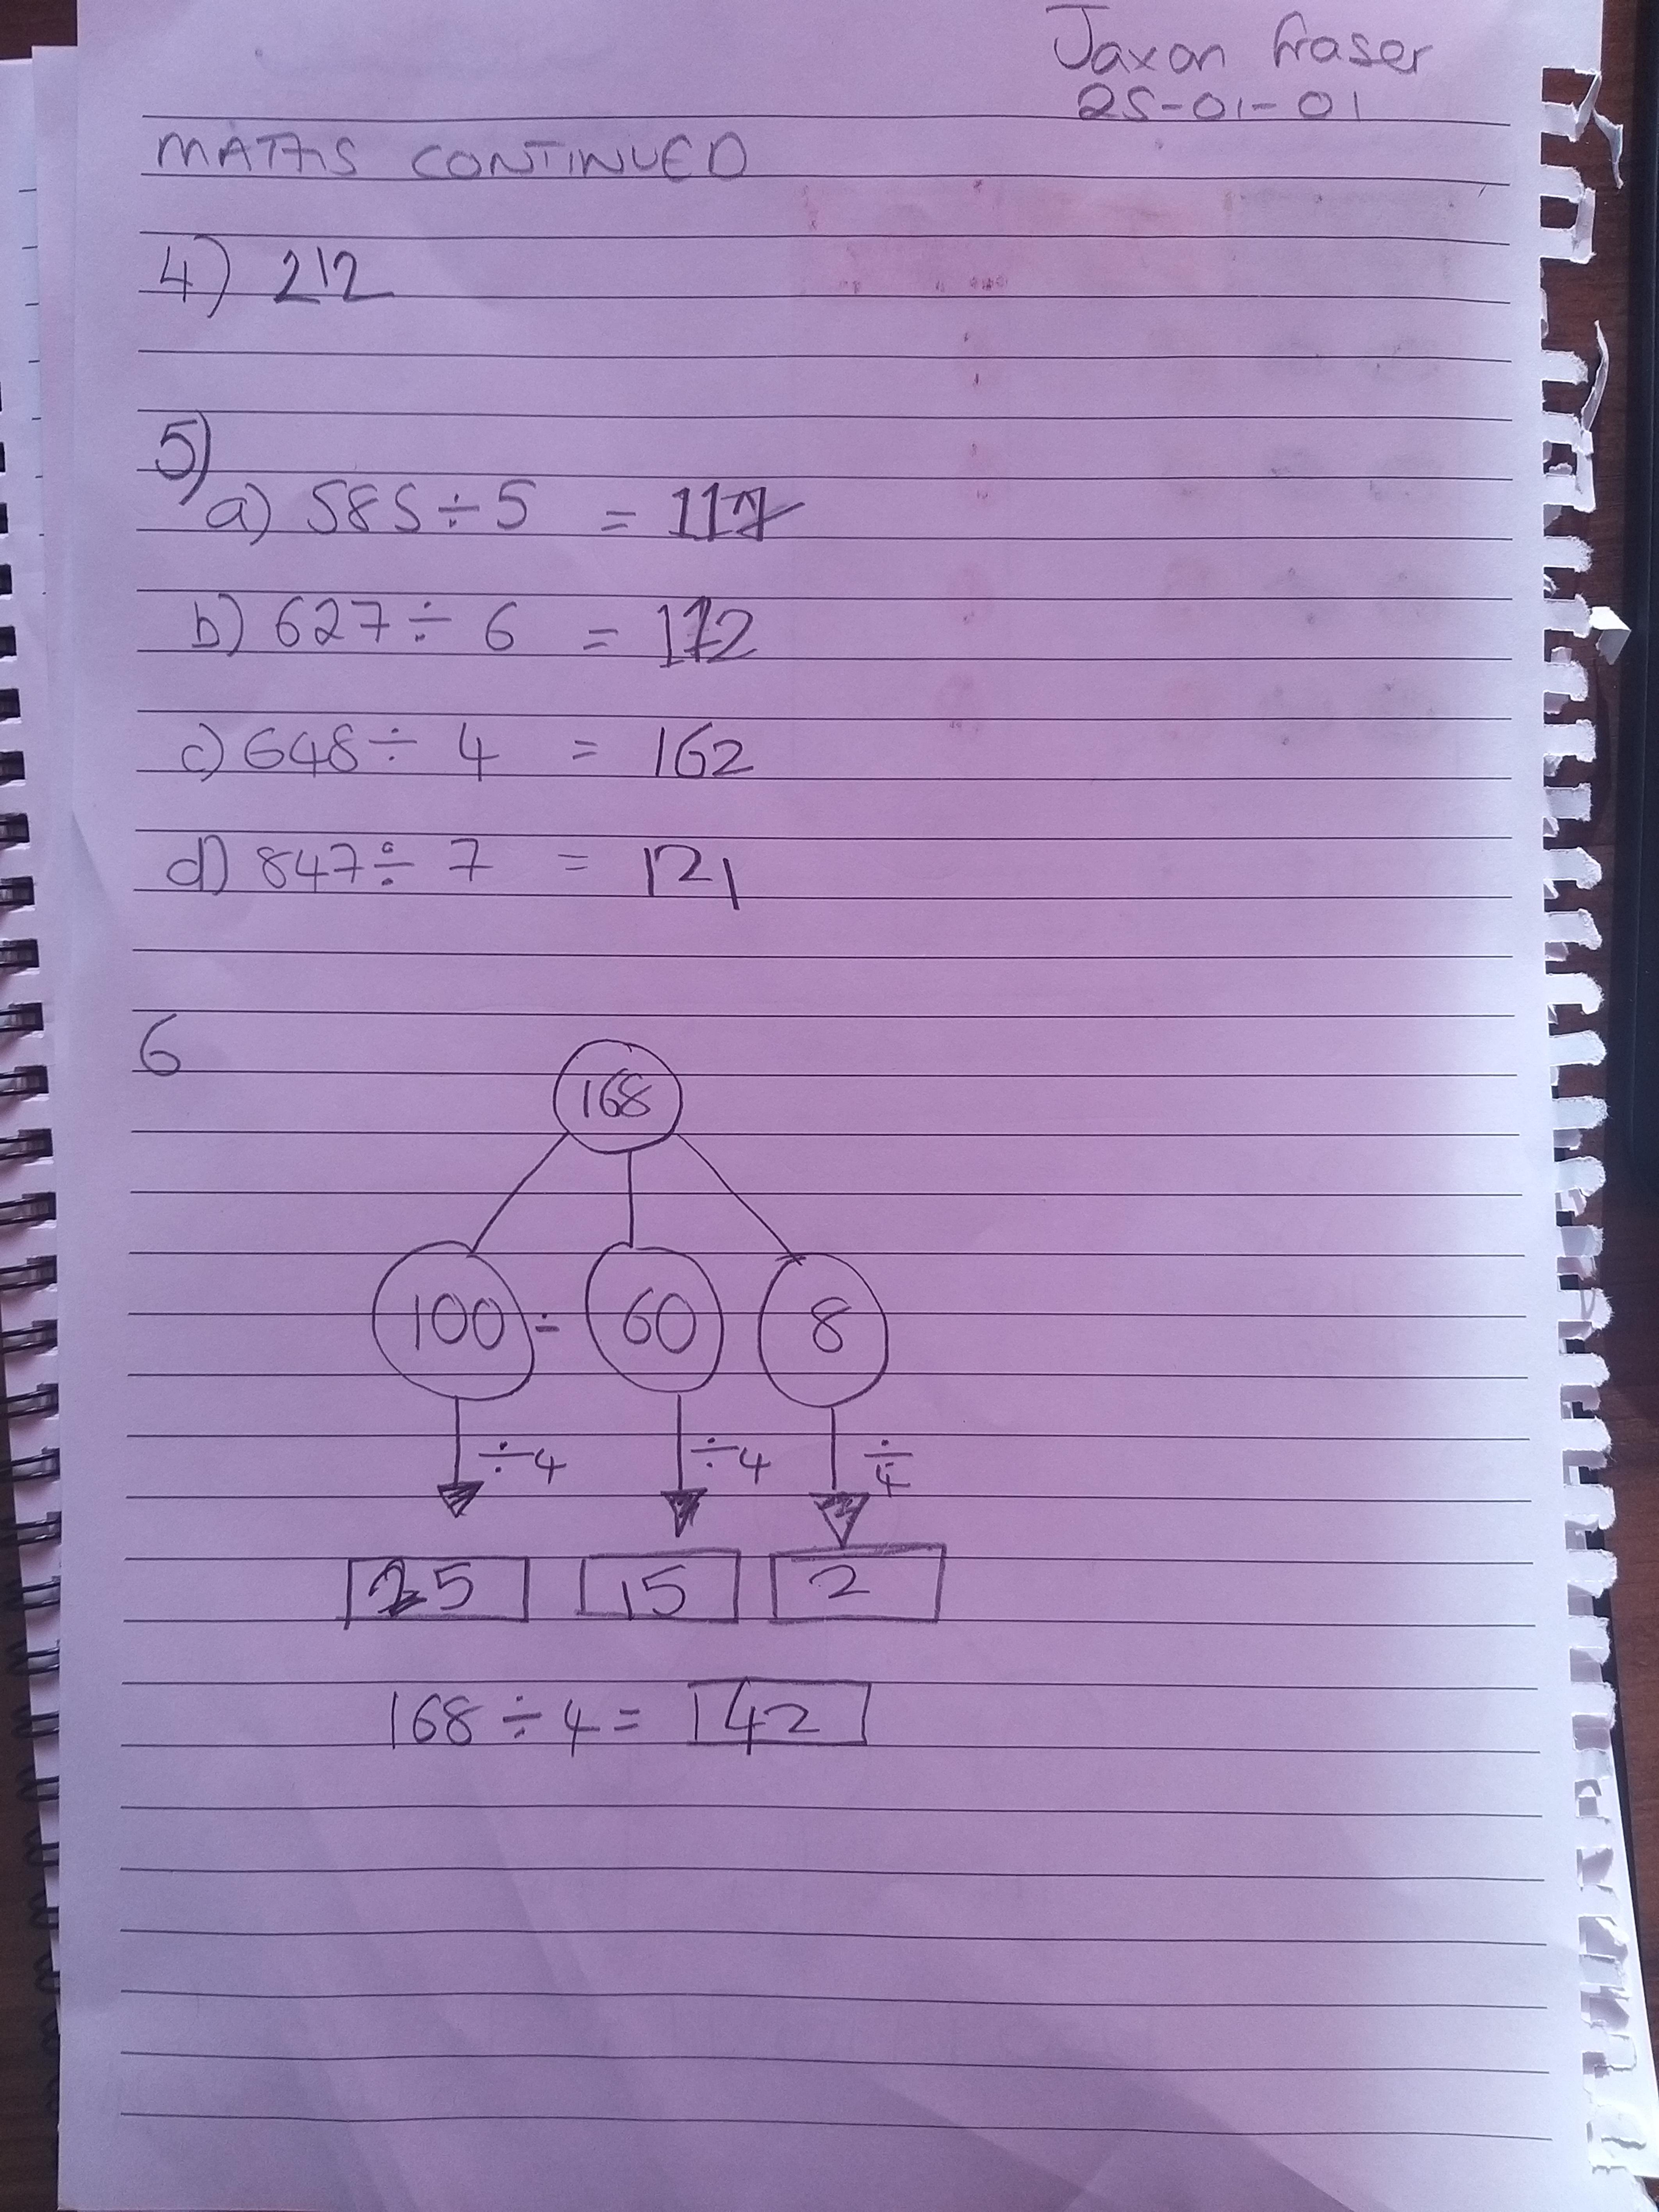 Jaxon Fraser
25-01-01
MATHS CONTINUED
4) 212
5)
a) 585 ÷ 5 = 117
b) 627 ÷ 6 = 112
c) 648 ÷ 4 = 162
d) 847 ÷ 7 = 121
6
168
100 ÷ 60 8
÷4 ÷4 ÷4
25 15 2
168 ÷ 4 = 42